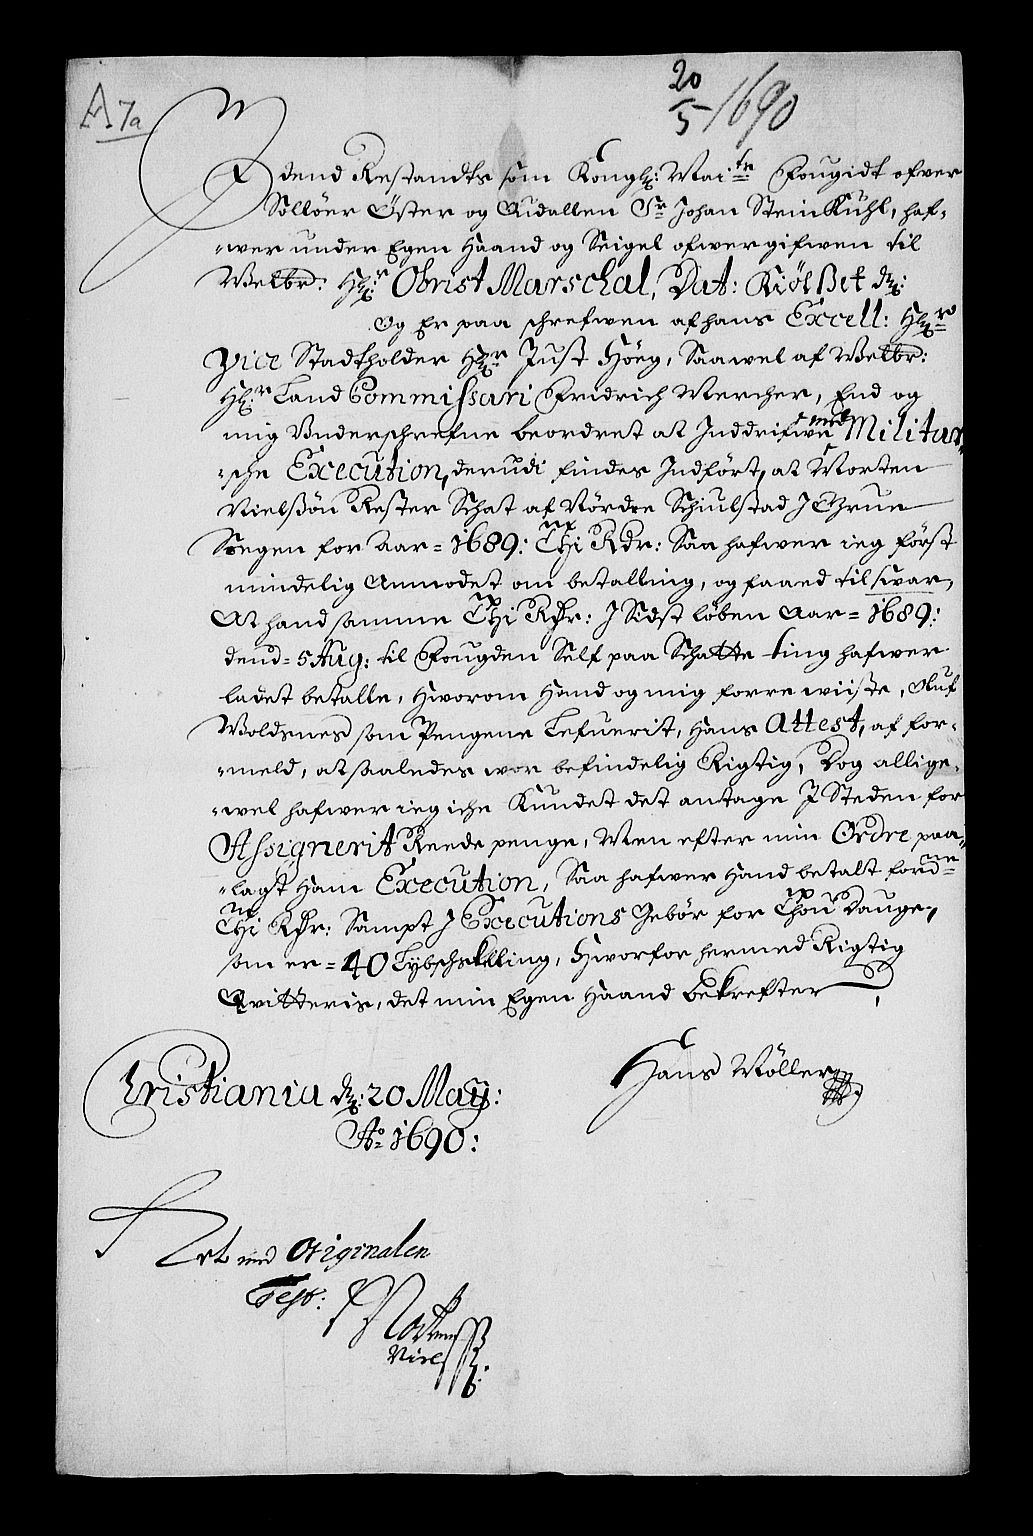 A 7a
20/5 1690
J dend Restandts som Kongl: Mai:ts Fougidt ofver
Sollöer Öster og Oudallen Sr Johan SteinKuhl, haf-
-wer under Egen Haand og Seigel ofwergifwen til
Welbr: Hr: Obrist Marschal, Dat: Kiölset d:
Og Er paa schrefwen af hans Excell: Hr:
Vice Stadtholder Hr: Just Höeg, Saawel af Welbr:
Hr: Land Commissari Fridrich Mercher, End og
mig Underschrefne beordret at Inddrifwe med Militar-
-sche Execution, derudi findes Indfört, at Morten
Nielssön Rester Schat af Nördre Schiulstad J Grue
Sogen for Aar= 1689: Thi Rdr: Saa hafwer ieg först
mindelig Anmodet om betalling, og faaed til swar,
At hand samme Thi Rdr: J Sidst löben Aar= 1689:
dend= 5 Aug: til Fougden Self paa Schatte ting hafwer
ladet betalle, Hworom Hand og mig forre wiiste, Oluf
Woldsnes som Pengene Lefuerit, Hans Attest, af for-
-meld, at saaledes wor befindelig Rigtig, Dog allige-
-wel hafwer ieg iche Kundet det antage J Steden for
Assignerit Reede penge, Men efter min Ordre paa-
-lagt Ham Execution, Saa hafwer Hand betalt fordne
Thi Rdr: Sampt J Executions Gebör for Thou Dauge,
som er= 40 Lybschskilling, Hworfor hermed Rigtig
Qvitteris, det min Egen Haand bekrefter
Cristiania d: 20 May:
Ao 1690:
Hans Möller
Ret med Originalen
Test: